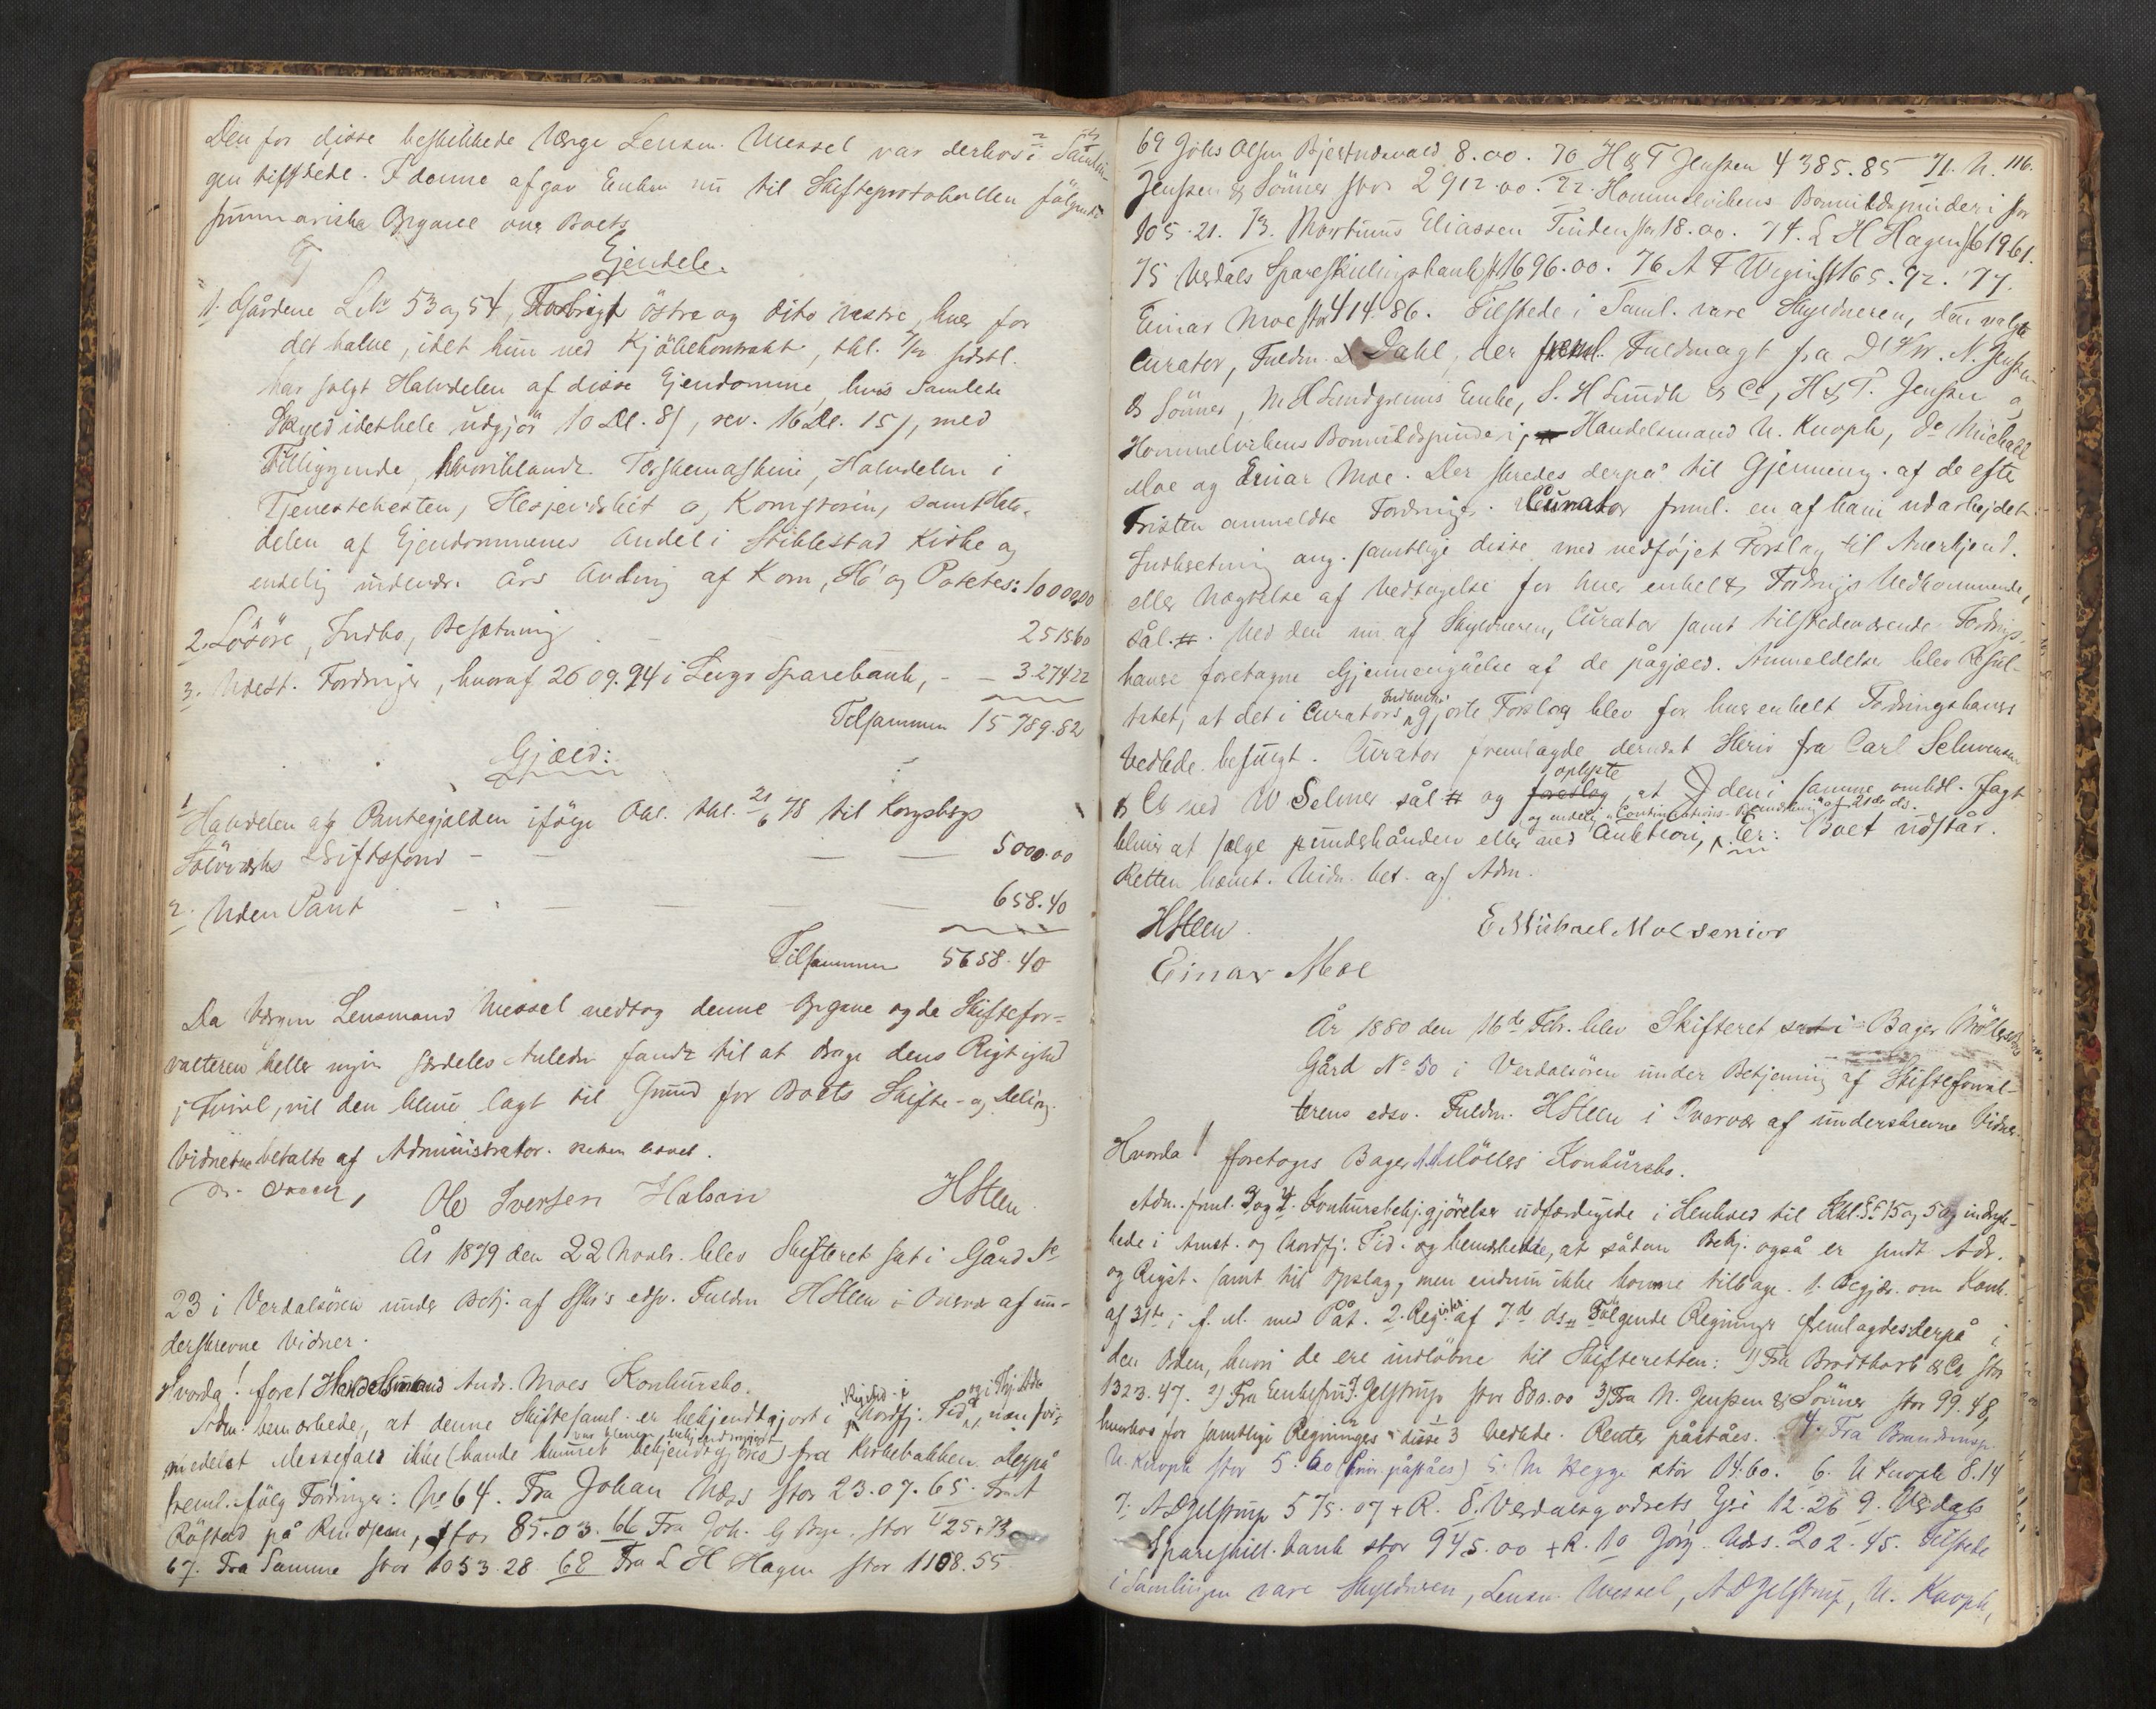 Den for disse beskikkede Værge Lensm. Wessel var derhos i Samlin-
gen tilstede. I denne afgav Enken nu til Skifteprotokollen følgende
summariske Opgave over Boets
Ejendele.
1. Gårdene L. № 53 og 54, østre og dito vestre, hver for
det halve, idet hun ved Kjøbekontrakt, thl. sidstl.
har solgt Halvdelen af disse Ejendomme, hvis samlede
Skyld idethele udgjør 10 Dl. 8 s, rev. 16 Dl. 15 s, med
Tilliggende, hvoriblandt Tærskemaskine, Halvdelen i
Tjenestehesten, og Kornstørin, samt Halv-
delen af Ejendommenes Andel i Stiklestad Kirke og
endelig indevær. Års Avling af Korn, Hø og Potetes: 10000.00
2. Løsøre, Indbo, Besætning 2515.60
3. Udest. Fordringer, hvoraf 2609.94 i Sparebank, - - 3274.22
Tilsammen 15789.82
Gjæld:
1 Halvdelen af Pantegjælden ifølge Obl. thl. 21/6 78 til Kongsbergs
Sølvværks Driftsfond - - - - 5000.00
2. Uden Pant - - - - - 658.40
Tilsammen 5658.40
Da Værgen Lensmand Wessel vedtog denne Opgave og da Skiftefor-
valteren heller ingen særdeles Anledn. fandt til at drage dens Rigtighed
i Tvivl, vil den blive lagt til Grund for Boets Skifte- og Deling.
Vidnerne betalte af Administrator. Retten hævet.
Ole Iversen Halsan HSteen
År 1879 den 22 Novbr. blev Skifteret sat i Gård №
23 i Verdalsøren under Betj. af Sfor's edsv. Fuldm HSteen i Overvær af un-
derskrevne Vidner.
Hvorda! foret Handelsmand Andr. Moes Konkursbo.
Adm. bemærkede, at denne Skiftesaml. er bekjendtgjort i Nordfj. Tid.
medelst Messefald ikke (havde kunnet bekjendtgjøres) fra Kirkebakken. Derpå
freml. følg Fordringer: № 64. Fra Johan Næss stor 23.07. 65. Fra A
Røstad på Rindsem, stor 85.03. 66 Fra Joh. G. Bye. stor 425.73
67. Fra Samme stor 1053.28 68 Fra L H Hagen stor 1108.55
116.
69 Johs Olsen 8.00. 70 H & T Jenssen 4385.85 71. N.
Jenssen & Sønner stor 2912.00. 72. Hommelvikens Bomuldspinderi stor
105.21. 73. Martinus Eliassen Tinden stor 18.00. 74. L H Hagen st 61961.
75 Verdals Spareskillingsbank st 1696.00. 76 A F st 165.92. 77.
Einar Moe stor 414.86. Tilstede i Saml. vare Skyldneren, den valgte
Curator, Fuldm. Dahl, der freml. Fuldmagt fra N. Jenssen
& Sønner, M H Lundgreens Enke, S. H Lundh & Co, H & T. Jenssen og
Hommelvikens Bomuldspinderi, Handelsmand N. Knoph, do Michael
Moe og Einar Moe. Der skredes derpå til Gjennemg. af de efter
Fristen anmeldte Fordringr. Curator freml. en af ham udarbejdet
Indberetning ang. samtlige disse med vedføjet Forslag til Anerkjend.
eller Nægtelse af Vedtagelse for hver enkelt Fordrings Vedkommende,
sål. #. Ved den nu af Skyldneren, Curator samt tilstedeværende Fordrings-
havere foretagne Gjennemgåelse af de pågjæld. Anmeldelser blev Resul-
tatet, at det i Curators Indberetn. gjorte Forslag blev for hver enkelt Fordringshavers
Vedkde. befulgt. Curator fremlagde dernæst Skriv fra Carl
& Co ved W Selmer sål # og foreslog oplyste at den i samme omhdl. Jagt
bliver at sælge underhånden eller ved Auktion, og endelig Continuations-Behandling af 21de ds. Er: Boet udstår.
Retten hævet. Vidn. bet. af Adm.
HSteen. E Mikael Moe senior
Einar Moe
År 1880 den 16de Febr. blev Skifteret sat i Bager Möllers
Gård № 50 i Verdalsøren under Betjening af Skifteforval-
terens edsv. Fuldm. HSteen i Overvær af underskrevne Vidner.
Hvorda! foretoges Bager Möllers Konkursbo.
Adm. freml. 3 og 4. Konkursbekj.gjørelser udfærdigede i Henhold til Kkl. §§ 15 og 5 og indryk-
kede i Amst. og Nordfj. Tid. og bemærkede, at sådan Bekj. også er sendt Adr.
og Regist. samt til Opslag, men endnu ikke komne tilbage. 1. Begjær. om Konk.
af 31te i f. M. med Påt. 2. Register af 7de ds. Følgende Regninger fremlagdes derpå i
den Orden, hvori de ere indløbne til Skifteretten: 1) Fra Brodtkorb & Co stor
1323.47. 2) Fra Enkefru J. Jelstrup stor 800.00 3) Fra N. Jenssen & Sønner stor 99.48,
hvorhos for samtlige Regninger i disse 3 Vedkde. Renter påståes. 4. Fra Brandinsp.
N. Knoph stor 5.60 (Prior. påståes) 5. M Hegge stor 14.60. 6. N Knoph 8.14
7. A D Jelstrup 575.07 + R. 8. Verdalsgodsets Eje 12.26 9. Verdals
Spareskill. bank stor 945.00 + R. 10 Jørg. Næs. 202.45. Tilstede
i Samlingen vare Skyldneren, Lensm. Wessel, A D Jelstrup, N. Knoph,